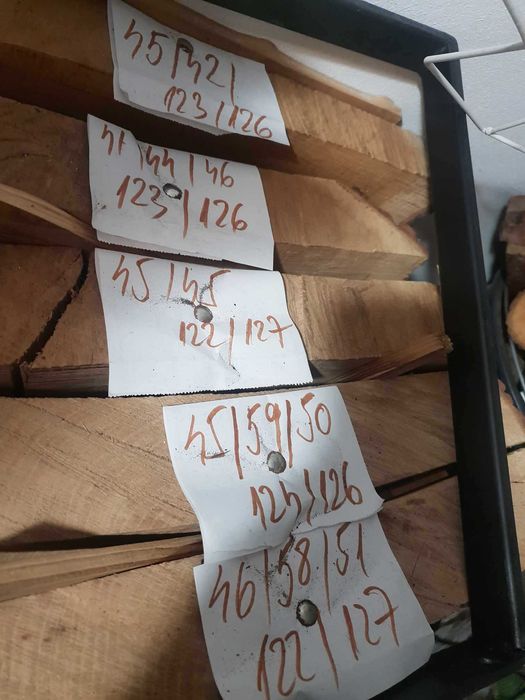 45/42/
123/126
41/44/46
123/126
45/45
122/127
45/59/50
124/126
46/58/51
122/127